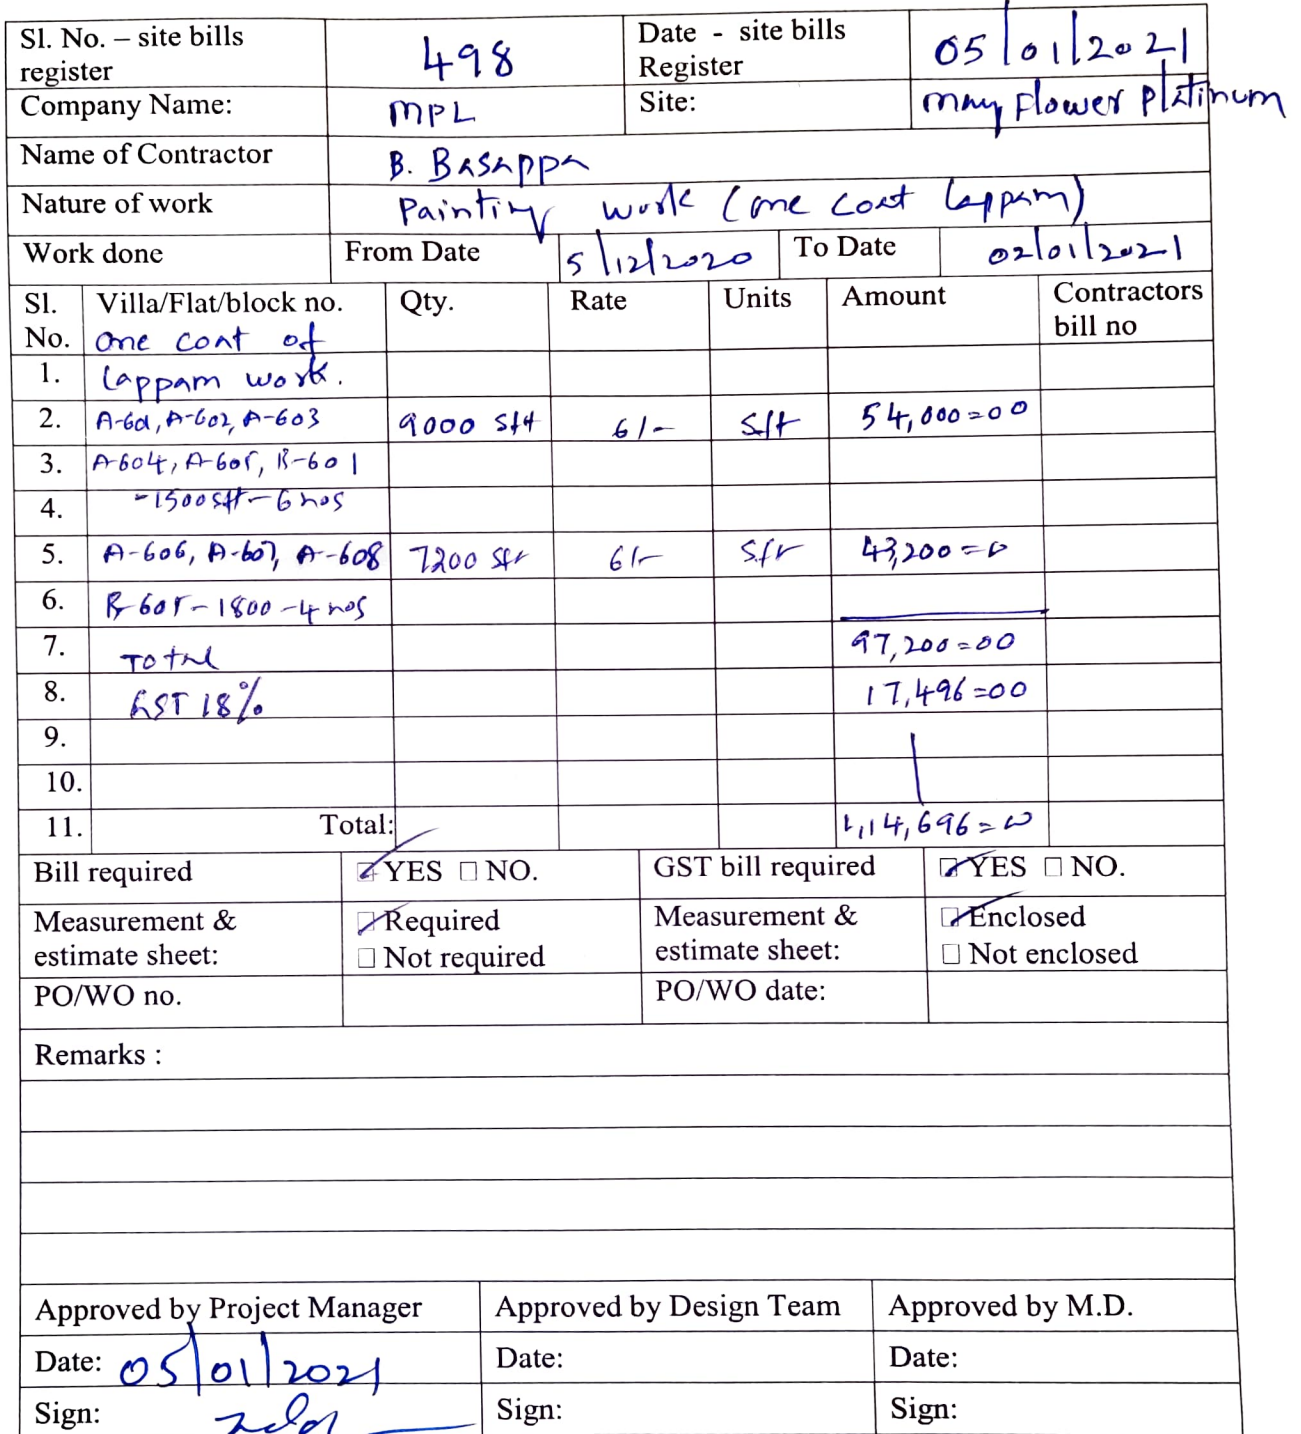 Sl. No. – site bills register 498 Date - site bills Register 05/01/2021
Company Name: MPL Site: may Flower Platinum
Name of Contractor B. Basappa
Nature of work Painting work (one coat lappam)
Work done From Date 5/12/2020 To Date 02/01/2021
Sl. No. Villa/Flat/block no. Qty. Rate Units Amount Contractors bill no
one coat of
1. lappam work.
2. A-601, A-602, A-603 9000 sft 6/- sft 54,000=00
3. A-604, A-605, B-601
4. -1500 sft - 6 nos
5. A-606, A-607, A-608 7200 sft 6/- sft 43,200=00
6. B-605-1800-4 nos
7. Total 97,200=00
8. GST 18% 17,496=00
9.
10.
11. Total: 1,14,696=00
Bill required ☑ YES ☐ NO. GST bill required ☑ YES ☐ NO.
Measurement & estimate sheet: ☑ Required ☐ Not required Measurement & estimate sheet: ☑ Enclosed ☐ Not enclosed
PO/WO no. PO/WO date:
Remarks :
Approved by Project Manager Approved by Design Team Approved by M.D.
Date: 05/01/2021 Date: Date:
Sign: Sign: Sign: